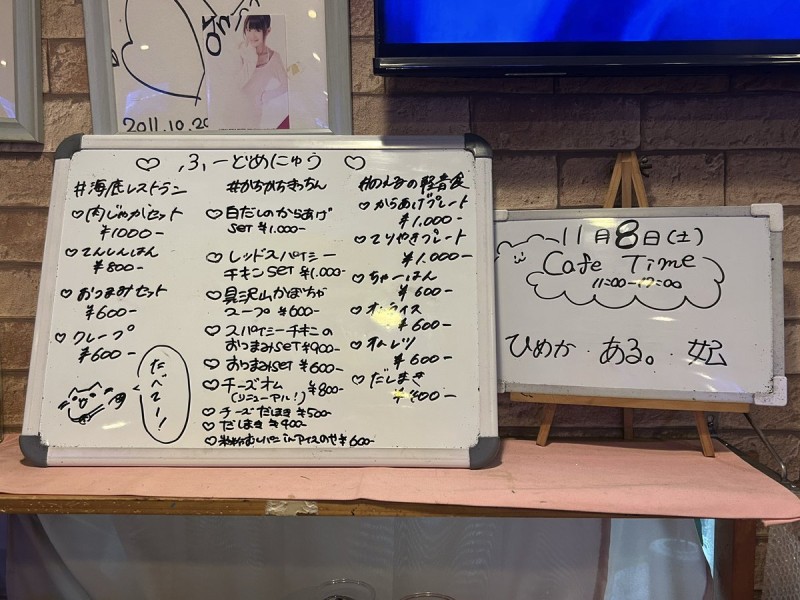 2011.10.20
♡ ふーどめにゅう ♡
#海底レストラン
♡肉じゃがセット
¥1000-
♡てんしんはん
¥800-
♡おつまみセット
¥600-
♡クレープ
¥600-
たべてー!
#かちかちきっちん
♡白だしのからあげ
SET ¥1.000-
♡レッドスパイシー
チキンSET ¥1.000-
♡具沢山かぼちゃ
スープ ¥600-
♡スパイシーチキンの
おつまみSET ¥900-
♡おつまみSET ¥600-
♡チーズオム ¥800-
(リニューアル!)
♡チーズだしまき ¥500-
♡だしまき ¥400-
♡米粉むしパンinアイスのせ ¥600-
#のえるの軽音食
♡からあげプレート
¥1.000-
♡てりやきプレート
¥1.000-
♡ちゃーはん
¥600-
♡オムライス
¥600-
♡オムレツ
¥600-
♡だしまき
¥400-
11月8日(土)
Cafe Time
11:00-17:00
ひめか・ある。・妃